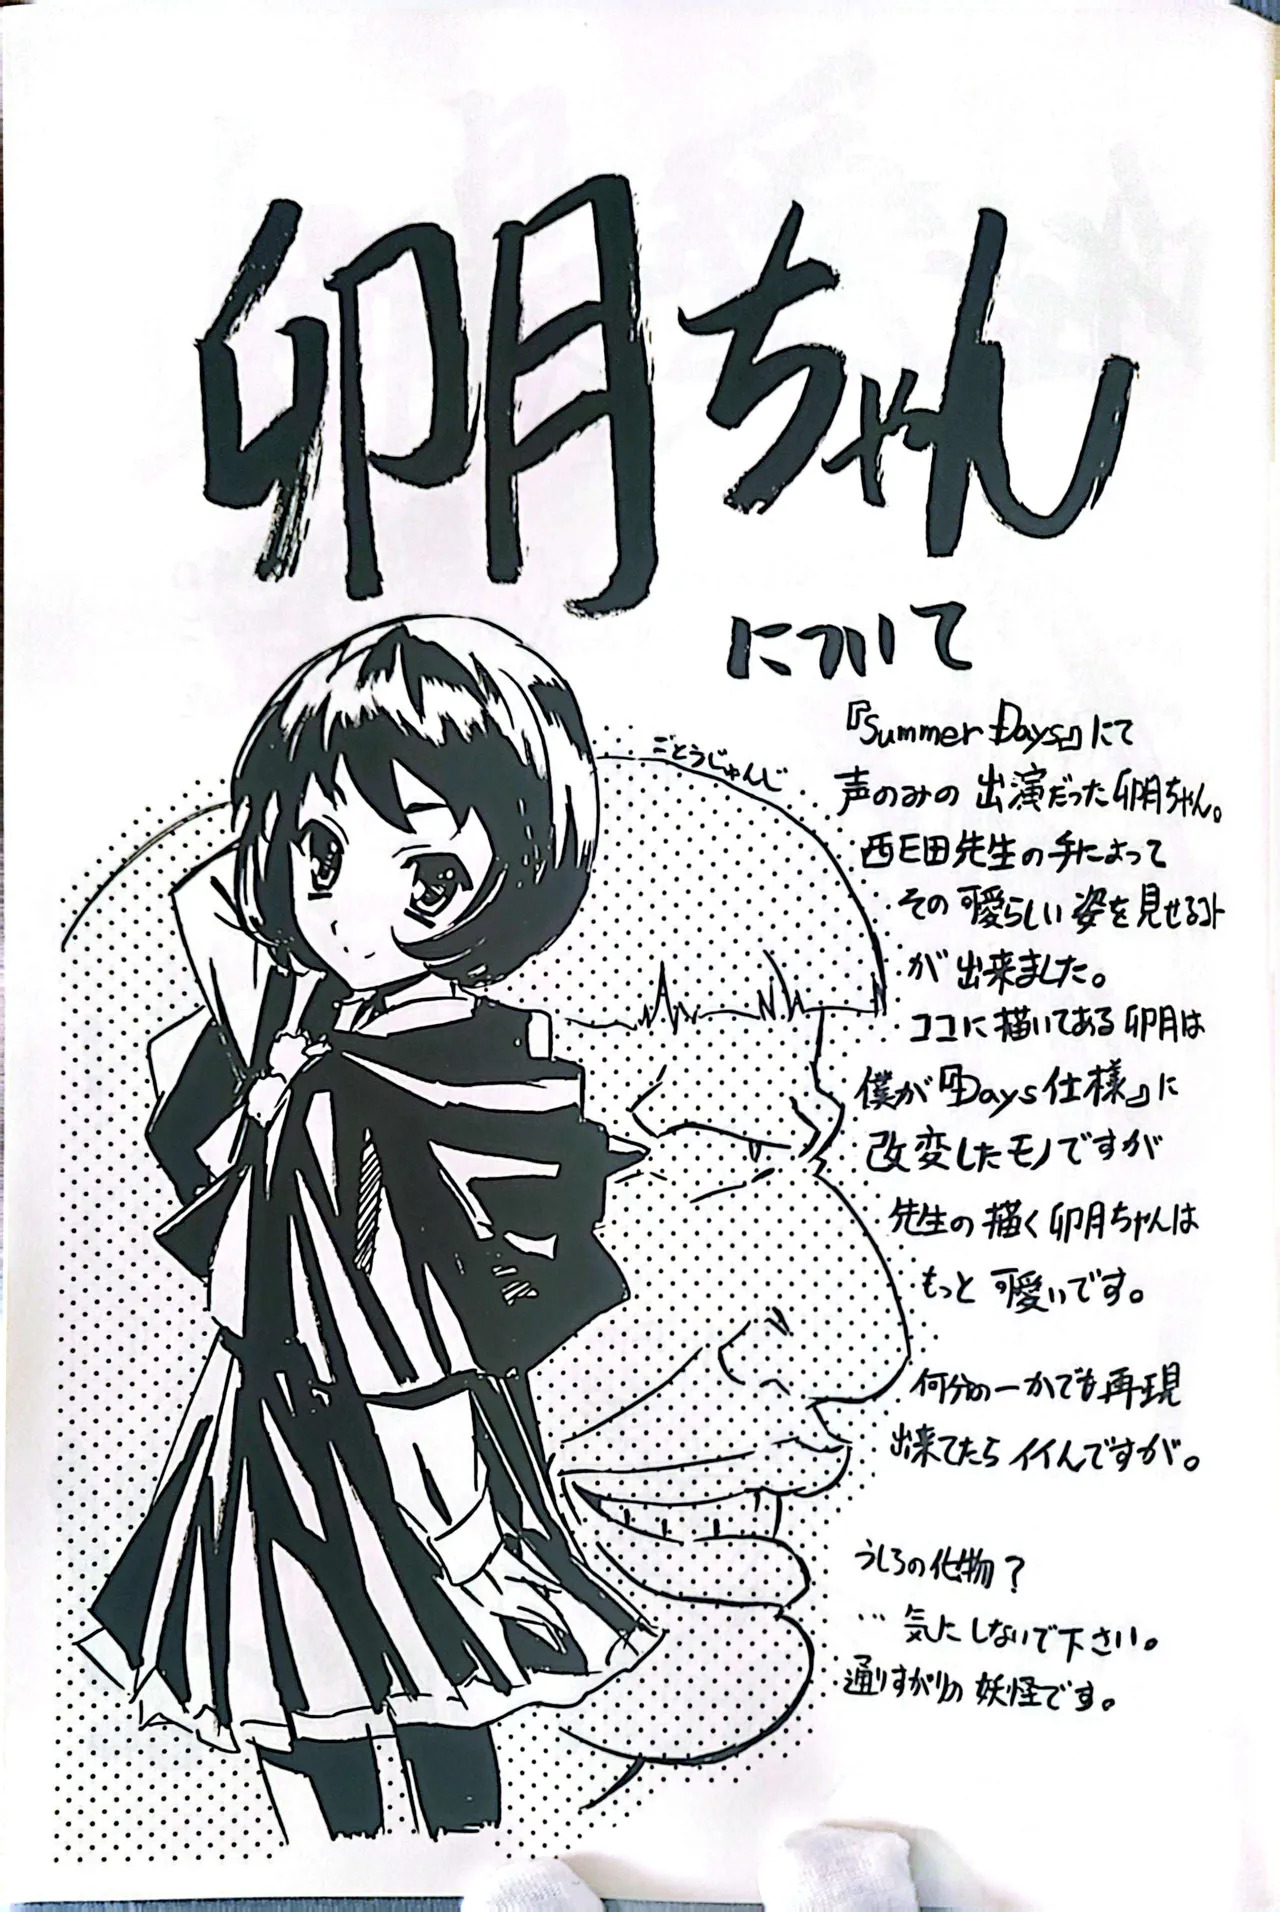 卯月ちゃん
について
ごとうじゅんじ
『Summer Days』にて
声のみの出演だった卯月ちゃん。
西E田先生の手によって
その可愛らしい姿を見せるコト
が出来ました。
ココに描いてある卯月は
僕が『Days仕様』に
改変したモノですが
先生の描く卯月ちゃんは
もっと可愛いです。
何分の一かでも再現
出来てたらイイんですが。
うしろの化物?
…気にしないで下さい。
通りすがりの妖怪です。